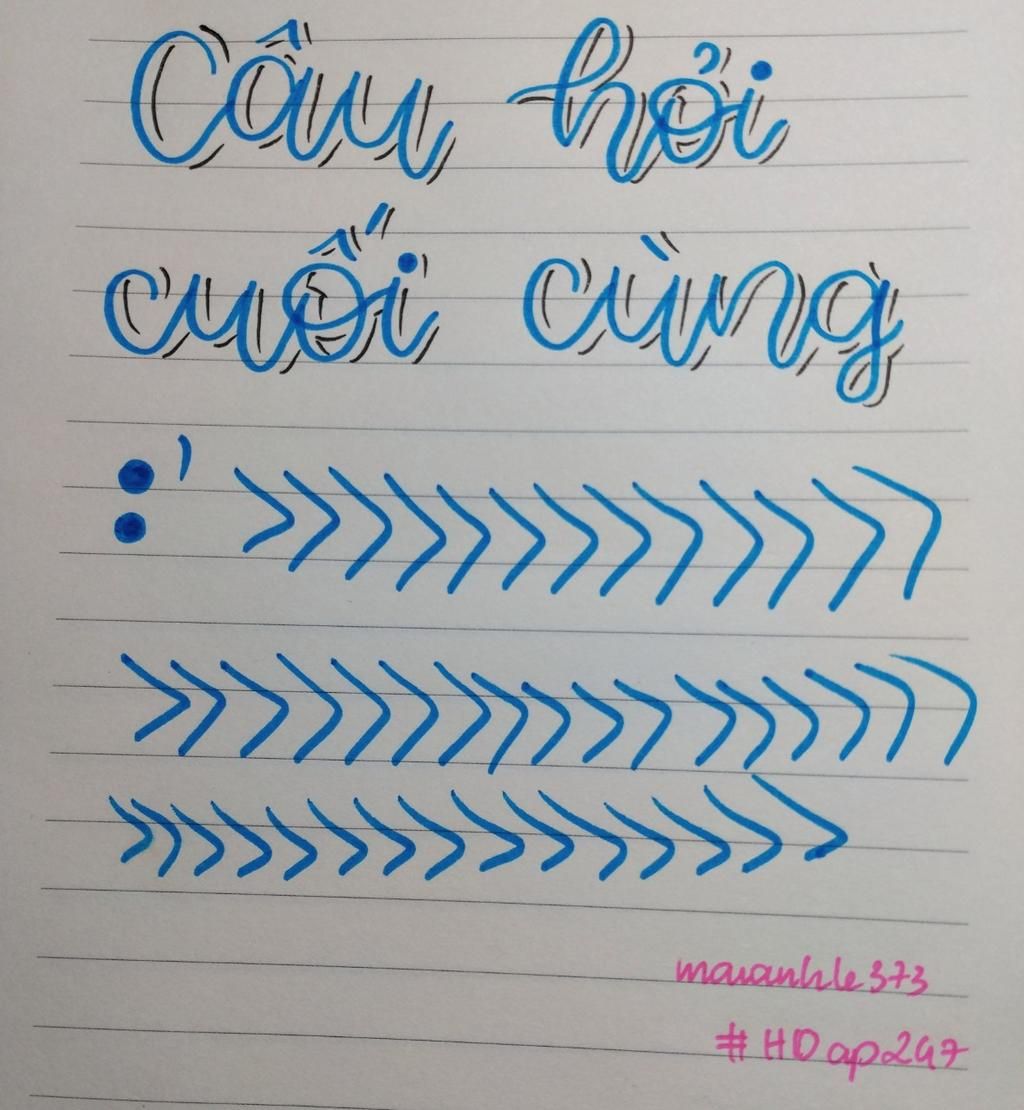 Câu hỏi
cuối cùng
:' >>>>>>>>>>>>>
>>>>>>>>>>>>>>>>>
>>>>>>>>>>>>>>>
#HDap247